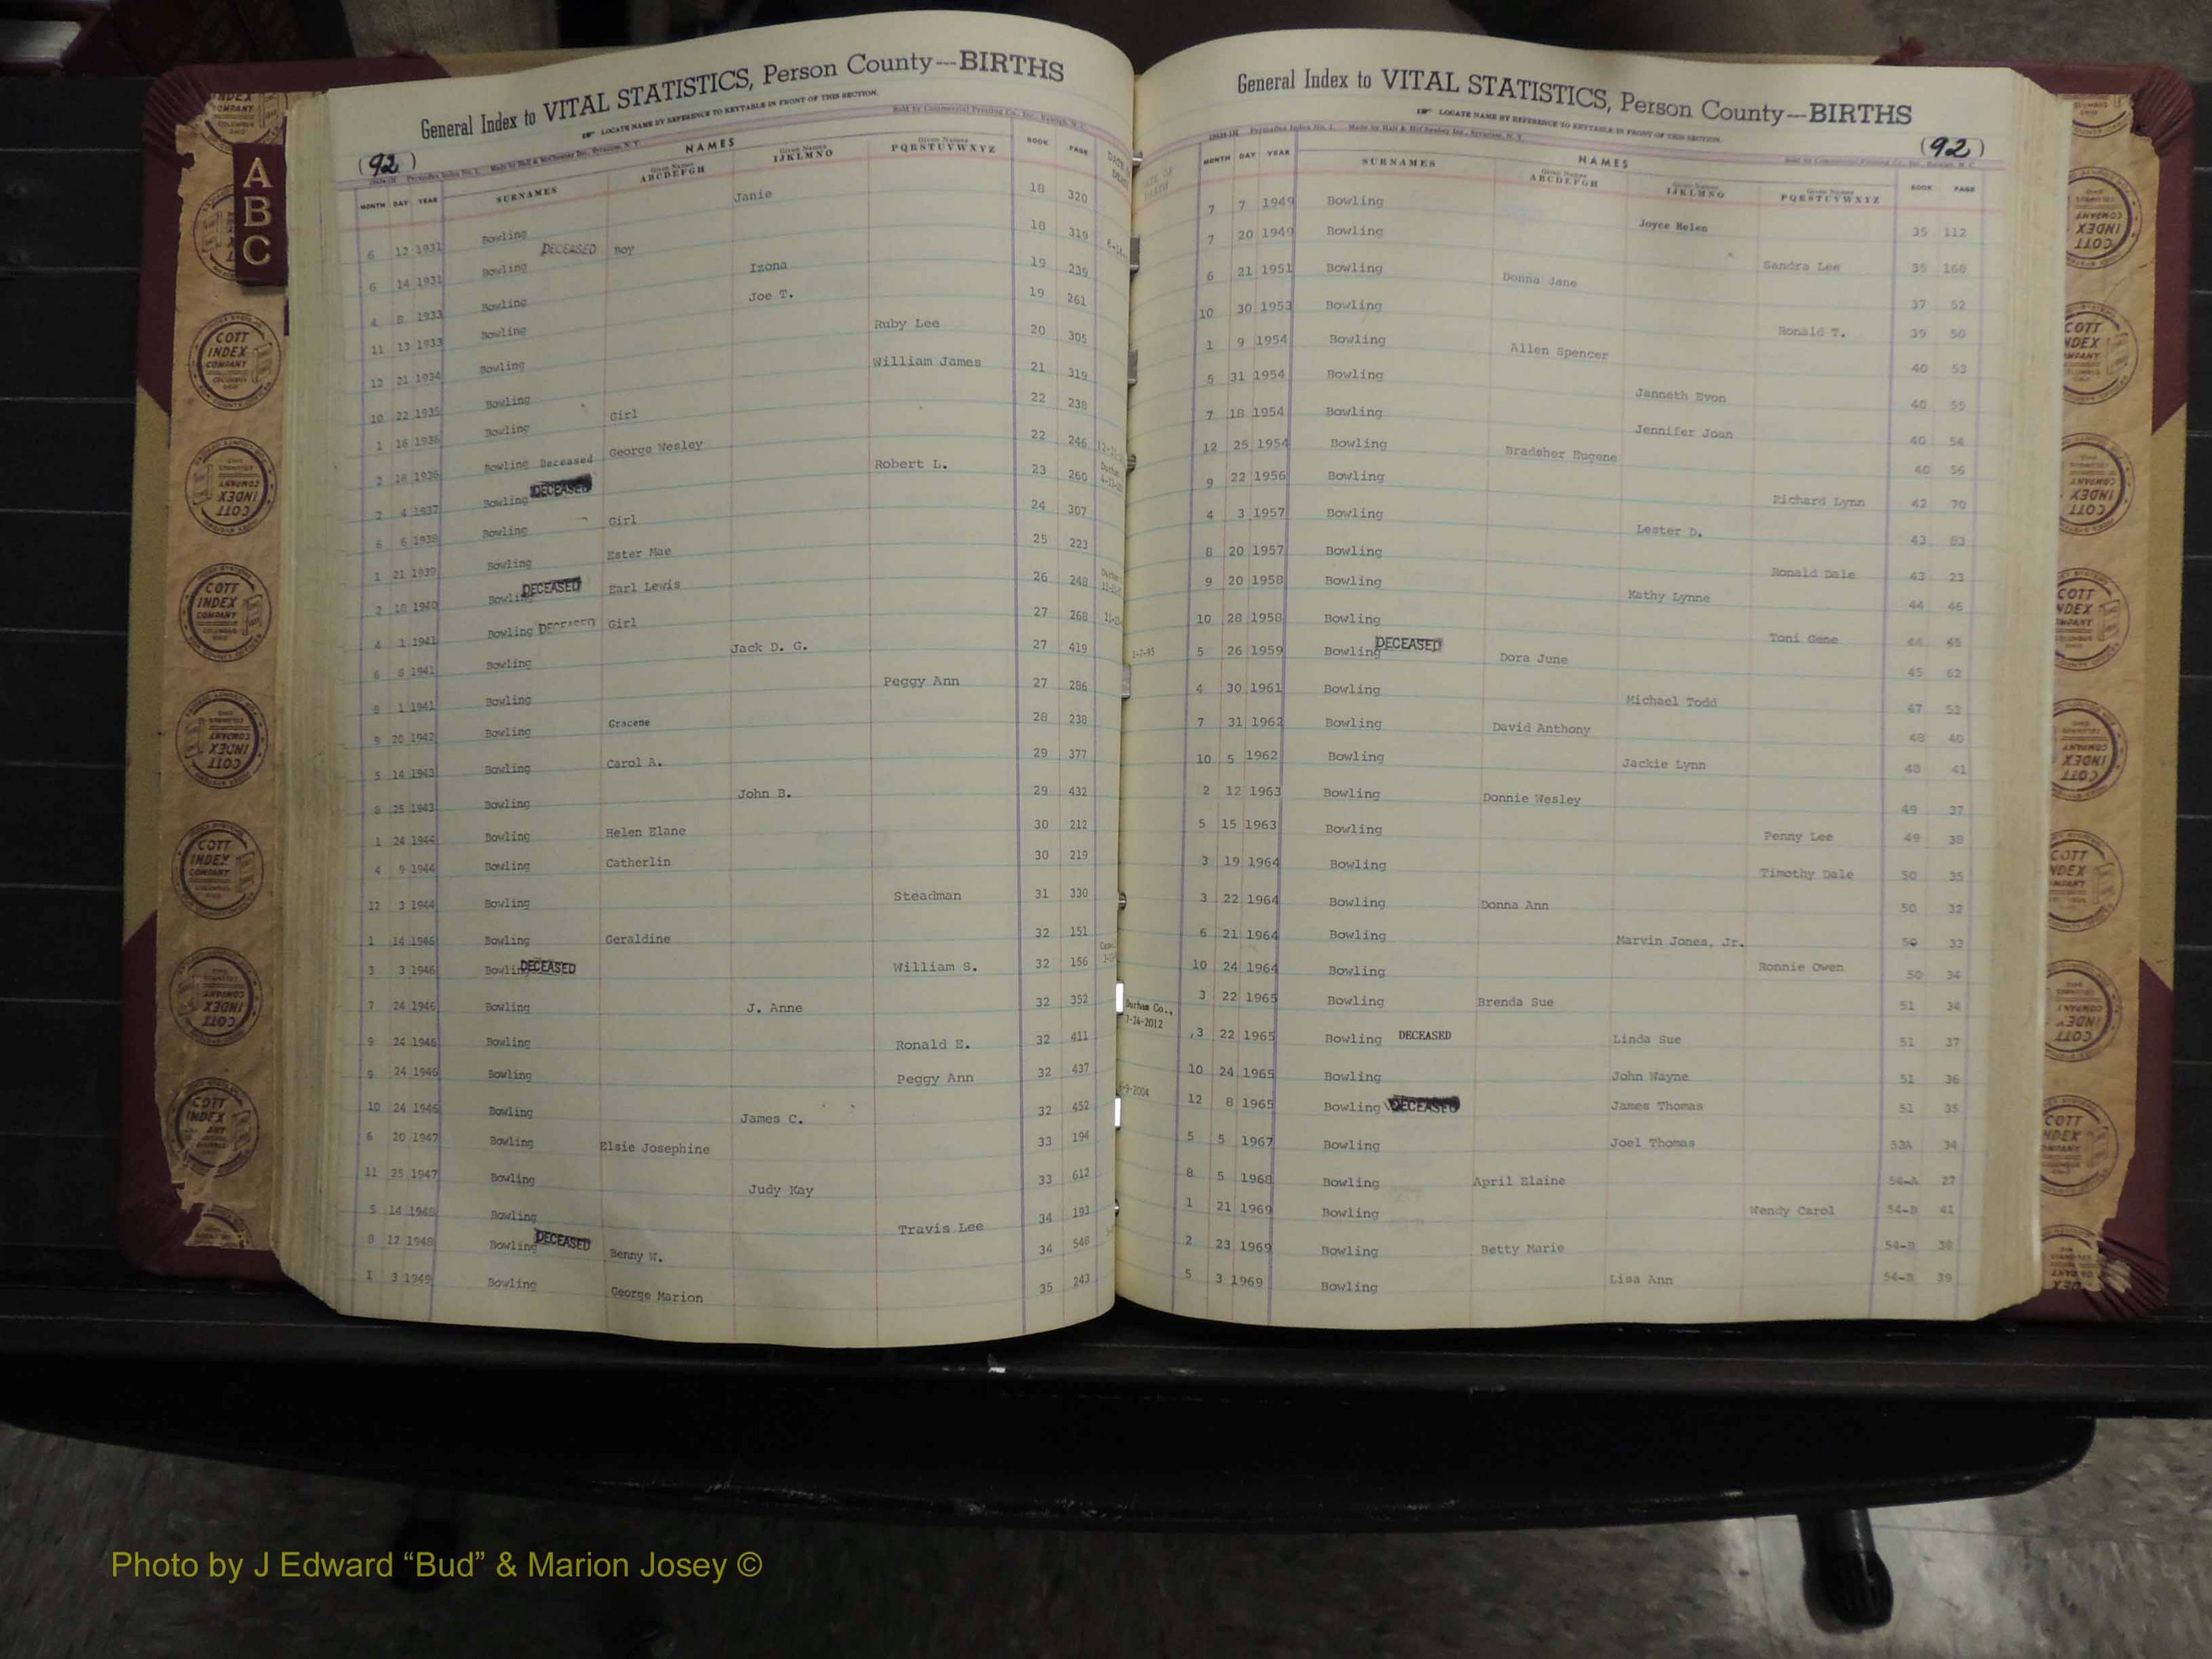 General Index to VITAL STATISTICS, Person County---BIRTHS
LOCATE NAME BY REFERENCE TO KEYTABLE IN FRONT OF THIS SECTION.
(92)
Sold by Commercial Printing Co., Inc., Raleigh, N. C.
NAMES
MONTH DAY YEAR SURNAMES Given Names ABCDEFGH Given Names IJKLMNO Given Names PQRSTUVWXYZ BOOK PAGE
6 12 1931 Bowling Janie 18 320
6 14 1931 Bowling DECEASED Boy 18 319
4 8 1933 Bowling Izona 19 239
11 13 1933 Bowling Joe T. 19 261
12 21 1934 Bowling Ruby Lee 20 305
10 22 1935 Bowling William James 21 319
1 16 1936 Bowling Girl 22 238
2 16 1936 Bowling Deceased George Wesley 22 246
2 4 1937 Bowling DECEASED Robert L. 23 260
6 6 1938 Bowling Girl 24 307
1 21 1939 Bowling Ester Mae 25 223
2 18 1940 Bowling DECEASED Earl Lewis 26 248
4 1 1941 Bowling DECEASED Girl 27 268
6 8 1941 Bowling Jack D. G. 27 419
8 1 1941 Bowling Peggy Ann 27 286
9 20 1942 Bowling Gracene 28 238
5 14 1943 Bowling Carol A. 29 377
8 25 1943 Bowling John B. 29 432
1 24 1944 Bowling Helen Elane 30 212
4 9 1944 Bowling Catherlin 30 219
12 3 1944 Bowling Steadman 31 330
1 14 1946 Bowling Geraldine 32 151
3 3 1946 Bowling DECEASED William S. 32 156
7 24 1946 Bowling J. Anne 32 352
9 24 1946 Bowling Ronald E. 32 411
9 24 1946 Bowling Peggy Ann 32 437
10 24 1946 Bowling James C. 32 452
6 20 1947 Bowling Elsie Josephine 33 194
11 25 1947 Bowling Judy Kay 33 612
5 14 1948 Bowling Travis Lee 34 193
8 12 1948 Bowling DECEASED Benny W. 34 546
1 3 1949 Bowling George Marion 35 243
General Index to VITAL STATISTICS, Person County---BIRTHS
LOCATE NAME BY REFERENCE TO KEYTABLE IN FRONT OF THIS SECTION.
(92)
NAMES
MONTH DAY YEAR SURNAMES Given Names ABCDEFGH Given Names IJKLMNO Given Names PQRSTUVWXYZ BOOK PAGE
7 7 1949 Bowling Joyce Helen 35 112
7 20 1949 Bowling Sandra Lee 35 168
6 21 1951 Bowling Donna Jane 37 52
10 30 1953 Bowling Ronald T. 39 50
1 9 1954 Bowling Allen Spencer 40 53
5 31 1954 Bowling Janneth Evon 40 55
7 18 1954 Bowling Jennifer Joan 40 54
12 25 1954 Bowling Bradsher Eugene 40 56
9 22 1956 Bowling Richard Lynn 42 70
4 3 1957 Bowling Lester D. 43 83
8 20 1957 Bowling Ronald Dale 43 23
9 20 1958 Bowling Kathy Lynne 44 46
10 28 1958 Bowling Toni Gene 44 45
5 26 1959 Bowling DECEASED Dora June 45 62
4 30 1961 Bowling Michael Todd 47 52
7 31 1962 Bowling David Anthony 48 40
10 5 1962 Bowling Jackie Lynn 48 41
2 12 1963 Bowling Donnie Wesley 49 37
5 15 1963 Bowling Penny Lee 49 38
3 19 1964 Bowling Timothy Dale 50 35
3 22 1964 Bowling Donna Ann 50 32
6 21 1964 Bowling Marvin Jones, Jr. 50 33
10 24 1964 Bowling Ronnie Owen 50 34
3 22 1965 Bowling Brenda Sue 51 34
Durham Co., 7-24-2012 3 22 1965 Bowling DECEASED Linda Sue 51 37
10 24 1965 Bowling John Wayne 51 36
12 8 1965 Bowling DECEASED James Thomas 51 35
5 5 1967 Bowling Joel Thomas 53A 34
8 5 1968 Bowling April Elaine 54-A 27
1 21 1969 Bowling Wendy Carol 54-B 41
2 23 1969 Bowling Betty Marie 54-B 38
5 3 1969 Bowling Lisa Ann 54-B 39
A
B
C
COTT INDEX COMPANY
Photo by J Edward “Bud” & Marion Josey ©